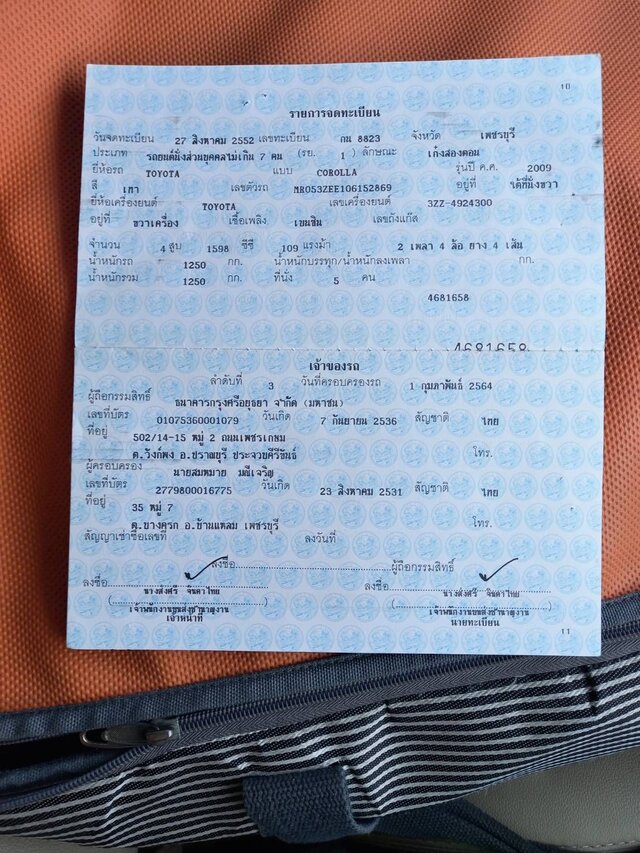 10
รายการจดทะเบียน
วันจดทะเบียน 27 สิงหาคม 2552 เลขทะเบียน กน 8823 จังหวัด เพชรบุรี
ประเภท รถยนต์นั่งส่วนบุคคลไม่เกิน 7 คน (รย. 1) ลักษณะ เก๋งสองตอน
ยี่ห้อรถ TOYOTA แบบ COROLLA รุ่นปี ค.ศ. 2009
สี เทา เลขตัวรถ MR053ZEE106152869 อยู่ที่ ใต้ที่นั่งขวา
ยี่ห้อเครื่องยนต์ TOYOTA เลขเครื่องยนต์ 3ZZ-4924300
อยู่ที่ ขวาเครื่อง เชื้อเพลิง เบนซิน เลขถังแก๊ส
จำนวน 4 สูบ 1598 ซีซี 109 แรงม้า 2 เพลา 4 ล้อ ยาง 4 เส้น
น้ำหนักรถ 1250 กก. น้ำหนักบรรทุก/น้ำหนักลงเพลา กก.
น้ำหนักรวม 1250 กก. ที่นั่ง 5 คน
4681658
4681658
เจ้าของรถ
ลำดับที่ 3 วันที่ครอบครองรถ 1 กุมภาพันธ์ 2564
ผู้ถือกรรมสิทธิ์ ธนาคารกรุงศรีอยุธยา จำกัด (มหาชน)
เลขที่บัตร 0107536001079 วันเกิด 7 กันยายน 2536 สัญชาติ ไทย
ที่อยู่ 502/14-15 หมู่ 2 ถนนเพชรเกษม
ต.วังก์พง อ.ปราณบุรี ประจวบคีรีขันธ์ โทร.
ผู้ครอบครอง นายสมหมาย มณีเจริญ
เลขที่บัตร 2779800016775 วันเกิด 23 สิงหาคม 2531 สัญชาติ ไทย
ที่อยู่ 35 หมู่ 7
ต.บางครก อ.บ้านแหลม เพชรบุรี โทร.
สัญญาเช่าซื้อเลขที่ ลงวันที่
ลงชื่อ ผู้ถือกรรมสิทธิ์
ลงชื่อ ลงชื่อ
นางส่งศรี จินดาไทย นางส่งศรี จินดาไทย
เจ้าพนักงานขนส่งชำนาญงาน เจ้าพนักงานขนส่งชำนาญงาน
เจ้าหน้าที่ นายทะเบียน
11